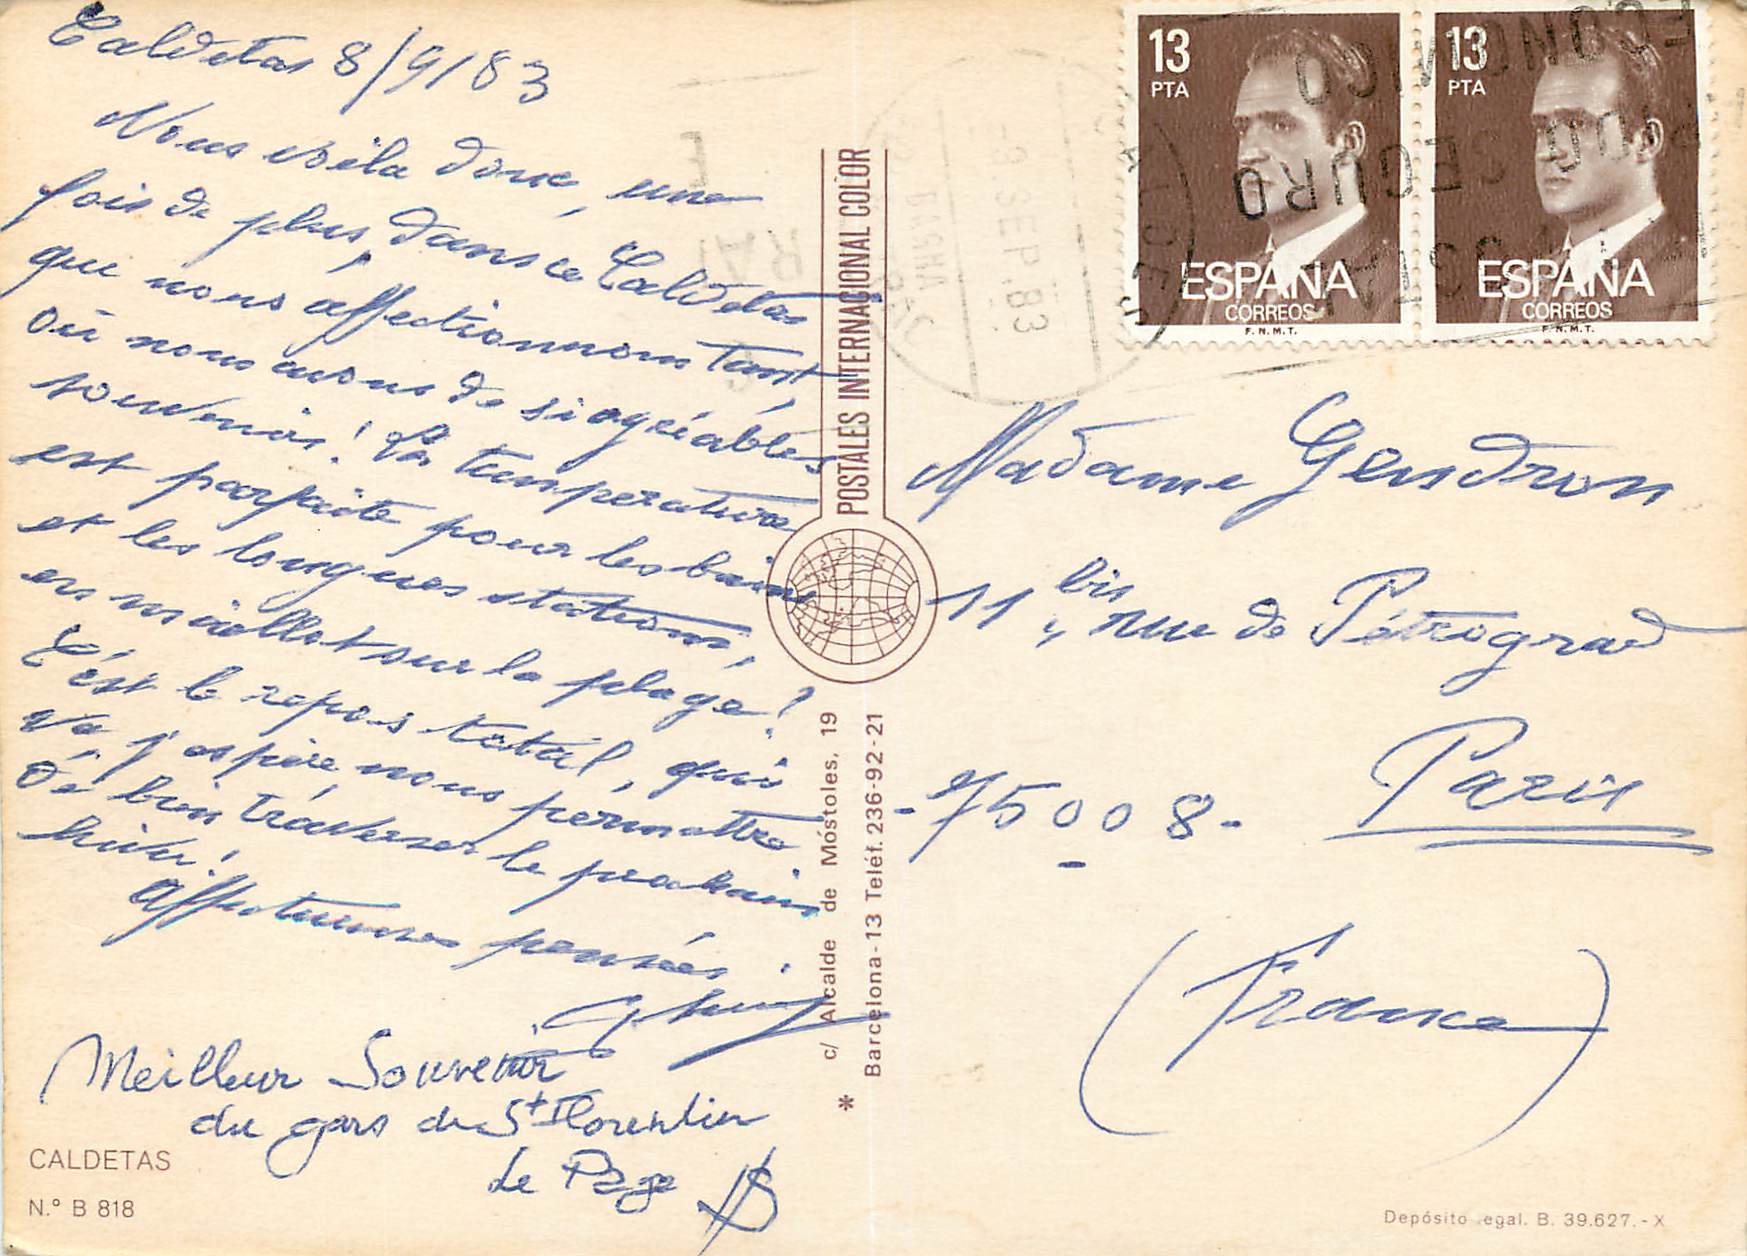 Caldetas 8/9/83
Nous voila donc, une
fois de plus, dans ce Caldetas
que nous affectionnons tant,
où nous avons de si agréables
souvenirs! La temperature
est parfaite pour les bains
et les longues stations,
en maillot sur la plage!
C'est le repos total, qui
va j'espère nous permettre
de bien traverser le prochain
hiver!
Affectueuses pensées.
Meilleur Souvenir
du gars de St Florentin
le Page
CALDETAS
N.º B 818
POSTALES INTERNACIONAL COLOR
c/ Alcalde de Móstoles, 19
Barcelona-13 Teléf. 236-92-21
*
13
PTA
ESPAÑA
CORREOS
F.N.M.T.
13
PTA
ESPAÑA
CORREOS
F.N.M.T.
ECONOMICO
SEGURO
SEP. 83
Madame Gendron
11 bis, rue de Pétrograd
-75008- Paris
(France)
Depósito legal. B. 39.627.-X